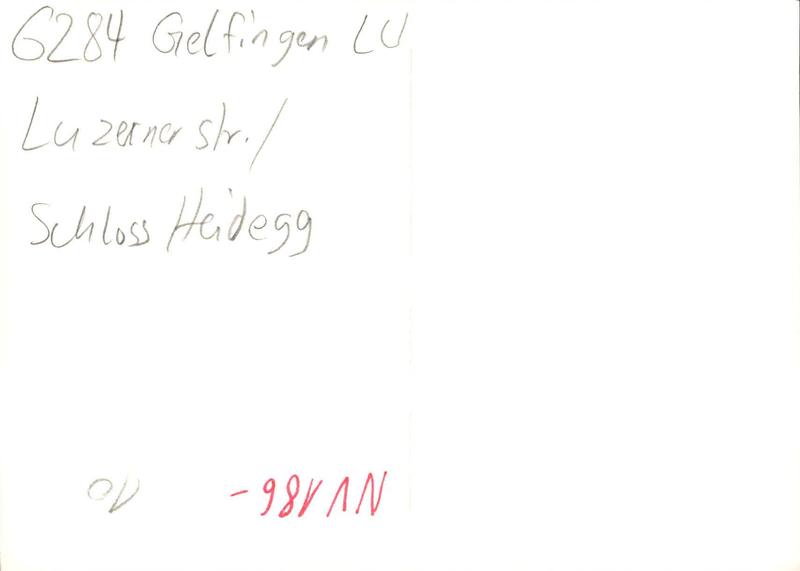 6284 Gelfingen LU
Luzernerstr./
Schloss Heidegg
10